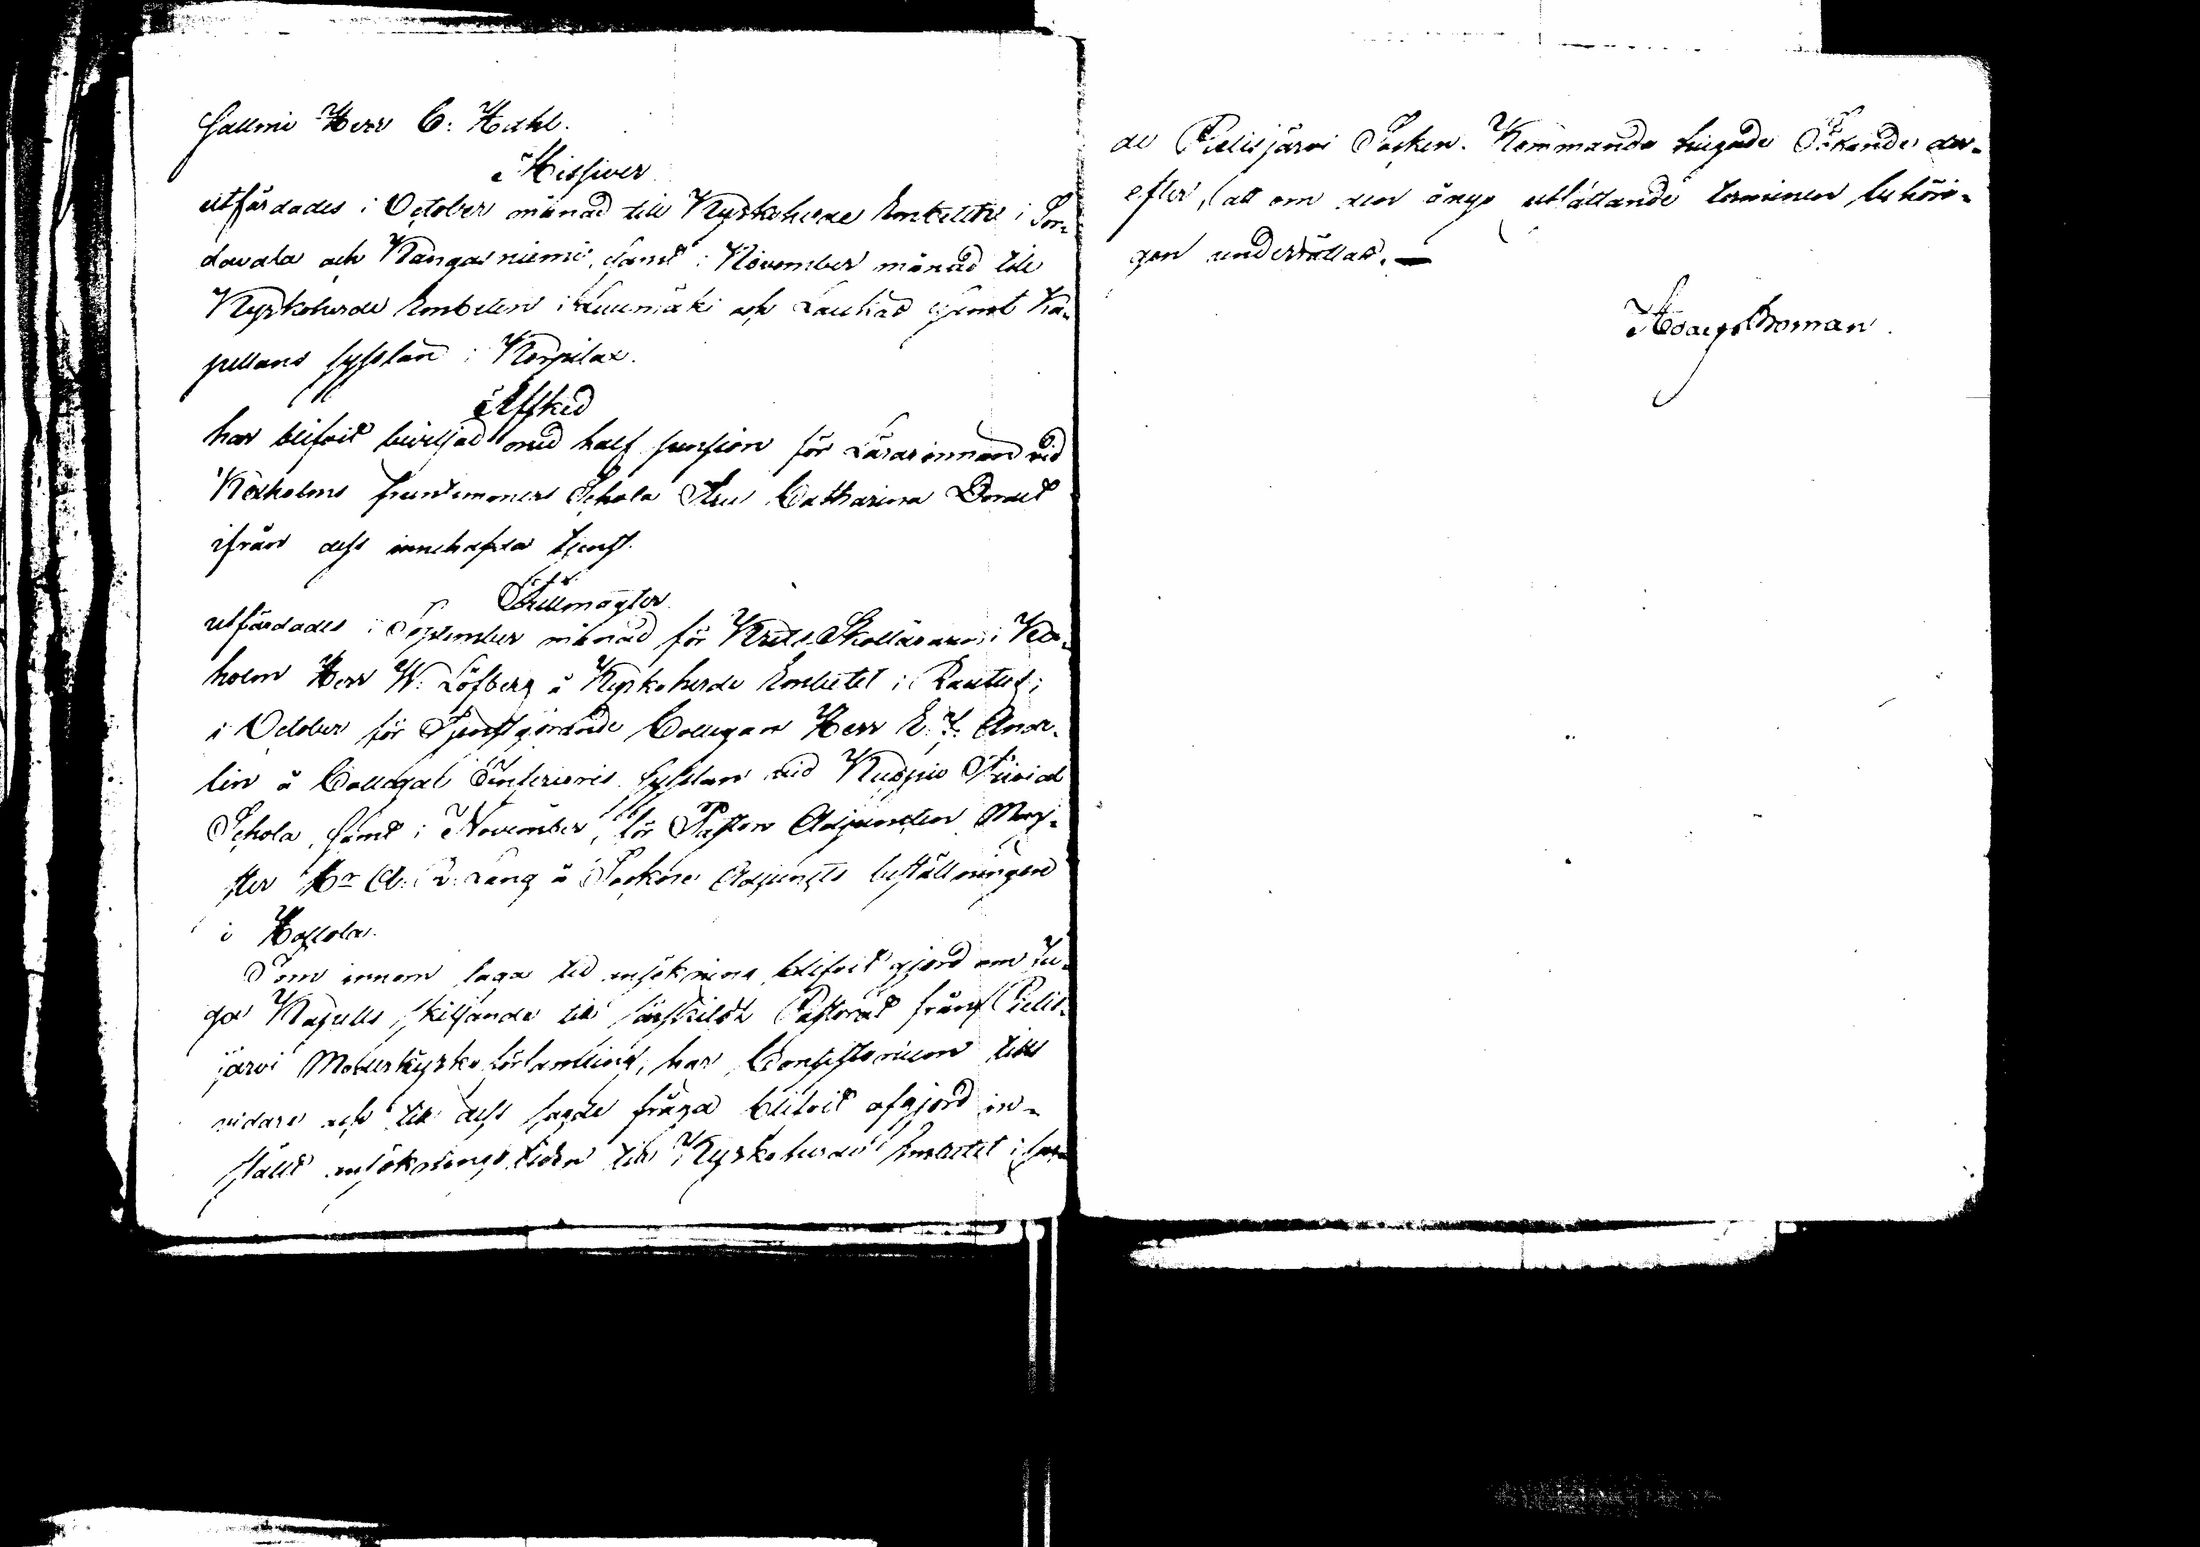 Salmi Herr C. Hahl.
Missiver
utfärdades i October månad till Kyrkoherde Embetet i Sor-
davala och Kangasniemi, samt i November månad till
Kyrkoherde Embeten i Luumäki och Lauksas samt Ka-
pellans sysslan i Korpilax.
Afsked
har blifvit beviljad med half pension för Lärarinnan vid
Kexholms fruntimmers Schola Fru Catharina
ifrån dess innehafda tjenst.
Fullmagter
utfärdades i September månad för Krets Skolläraren i Kex-
holm Herr W. Löfberg å Kyrkoherde Embetet i Rautus;
i October för Tjenstgörande Collegan Herr E. J. Ande-
lin å Collegae Inferioris sysslan vid Kuopio Trivial
Schola, samt i November, för Pastors Adjuncten Magi-
ster Hr A. Lang å Sockne Adjuncts beställningen
i
Som innom laga tid ansökning blifvit gjord om Ju-
ga Kapells skiljande till särskildt Pastorat från Pielis-
järvi Moderkyrko församling, har Consistorium tills
vidare och till dess sagde fråga blifvit afgjord in-
ställt ansöknings tiden till Kyrkoherde Embetet i sag-
de Pielisjärvi Socken. Kommande hugade Sökande der-
efter, att om den ånyo utsättande terminen behöri-
gen underrättas. —